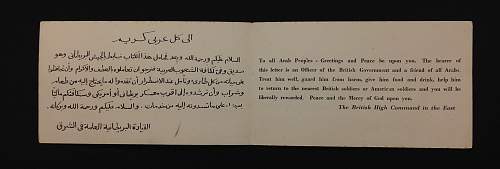 الى كل عربي كريم
السلام عليكم ورحمة الله وبعد فحامل هذا الكتاب ضابط بالجيش البريطاني وهو
صديق وفي لكافة الشعوب العربية فنرجو ان تعاملوه بالعطف والاكرام وأن تحافظوا
على حياته من كل طارئ ونأمل عند الاضطرار أن تقدموا له ما يحتاج اليه من طعام
وشراب وأن ترشدوه الى أقرب معسكر بريطاني أو امريكي وسنكافئكم ماليا
بسخاء على ما تسدونه اليه من خدمات. والسلام عليكم ورحمة الله وبركاته.
القيادة البريطانية العامة في الشرق
To all Arab Peoples – Greetings and Peace be upon you. The bearer of
this letter is an Officer of the British Government and a friend of all Arabs.
Treat him well, guard him from harm, give him food and drink, help him
to return to the nearest British soldiers or American soldiers and you will be
liberally rewarded. Peace and the Mercy of God upon you.
The British High Command in the East